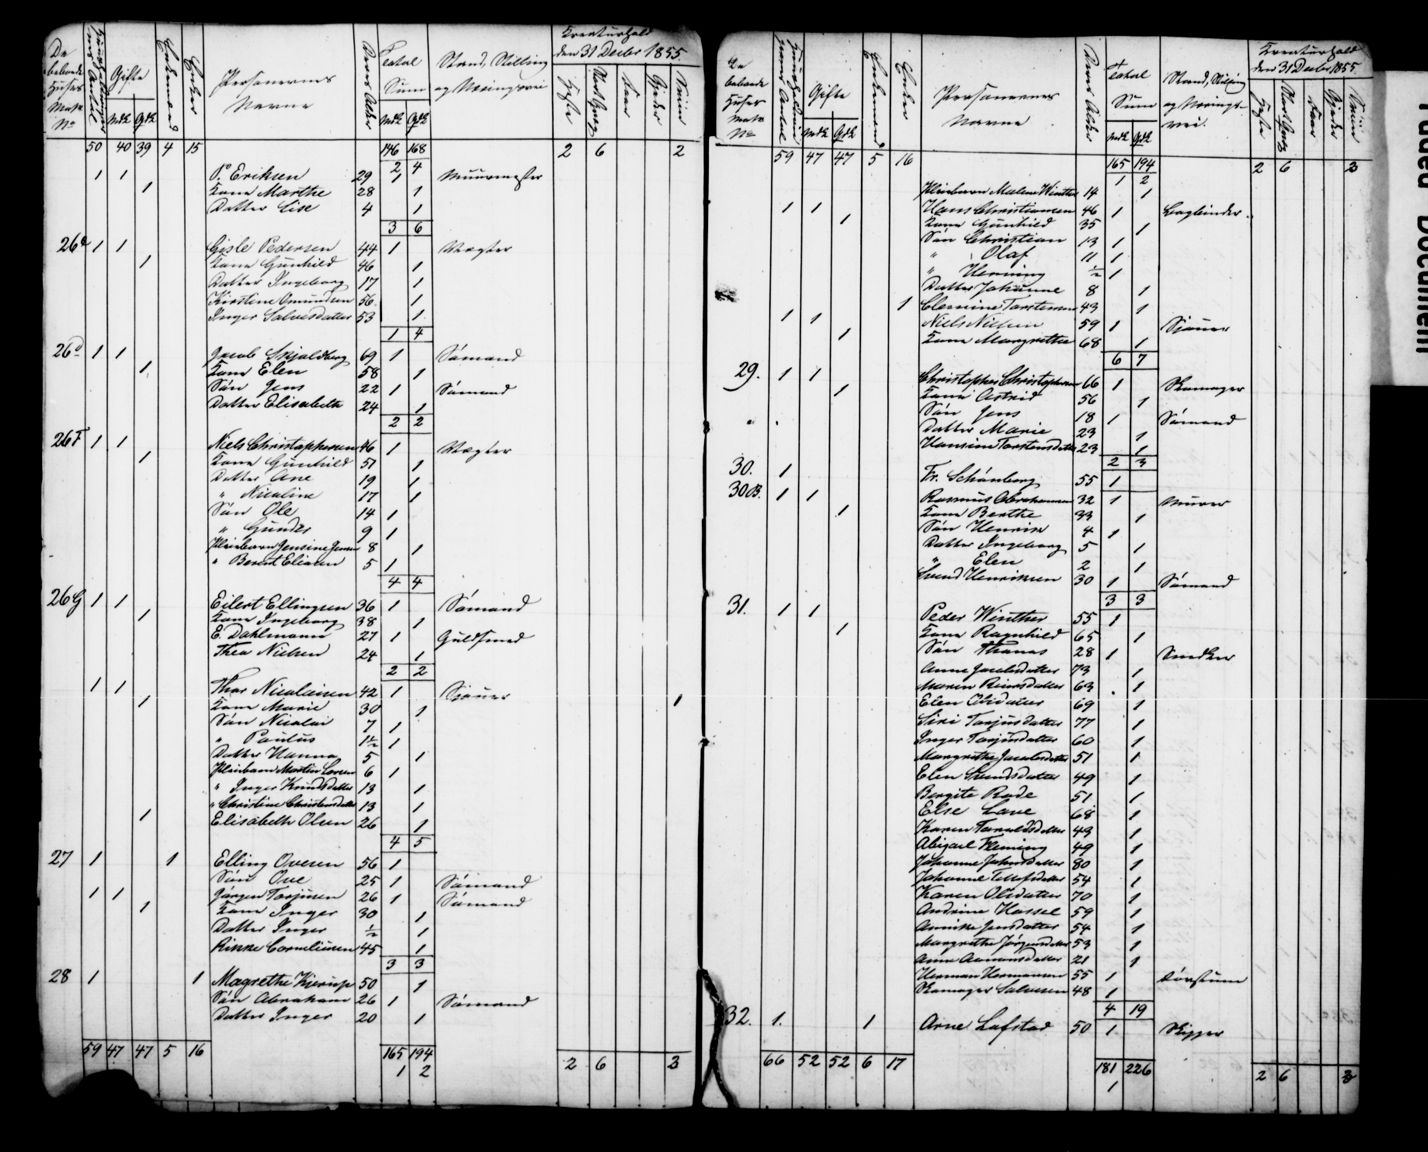 De beboede Huses Matr. No
Gifte
Mdk Qdk
Enkemænd
Enker
Personernes Navne
Deres Alder
Total Sum
Mdk Qdk
Stand, Stilling og Næringsvei
Kreaturhold den 31 Decbr 1855.
Heste
Faar
Sviin
50 40 39 4 15 146 168 2 6 2
2 4
1 1 P. Eriksen 29 1 Muurmester
1 Kone Marthe 28 1
Datter Lise 4 1
3 6
26 1 1 Gisle Pedersen 44 1 Vægter
1 Kone Gunhild 46 1
Datter Ingeborg 17 1
Kirstine Omundsen 56 1
Inger Salvesdatter 53 1
1 4
26 1 1 Jacob Skjoldborg 69 1 Sømand
1 Kone Elen 58 1
Søn Jens 22 1 Sømand
Datter Elisabeth 24 1
2 2
26F 1 1 Niels Christophersen 46 1 Vægter
1 Kone Gunhild 51 1
Datter Ane 19 1
" Nicoline 17 1
Søn Ole 14 1
" Gunder 9 1
Pleiebarn Jensine Jensen 8 1
" Berent Eliasen 5 1
4 4
26G 1 1 Eilert Ellingsen 36 1 Sømand
1 Kone Ingeborg 38 1
E. Dahlmann 27 1 Guldsmed
Thea Nielsen 24 1
2 2
1 1 Thor Nicolaisen 42 1 Sjouer
1 Kone Marie 30 1 1
Søn Nicolai 7 1
" Paulus 1½ 1
Datter Hanna 5 1
Pleiebarn Martin Larsen 6 1
" Inger Knudsdatter 13 1
" Christine Christensdatter 13 1
1 Elisabeth Olsen 26 1
4 5
27 1 1 Elling Ovesen 56 1
Søn Ove 25 1 Sømand
1 1 Jørgen Torjusen 26 1 Sømand
1 Kone Inger 30 1
Datter Inger ½ 1
Rikke Corneliusen 45 1
3 3
28 1 1 Magrethe Kjerulf 50 1
Søn Abraham 26 1 Sømand
Datter Inger 20 1
59 47 47 5 16 165 194 2 6 3
1 2
De beboede Huses Matr. No
Gifte
Mdk Qdk
Enkemænd
Enker
Personernes Navne
Deres Alder
Total Sum
Mdk Qdk
Stand, Stilling og Næringsvei.
Kreaturhold den 31 Decbr 1855.
Heste
Faar
Gjeder
Sviin
59 47 47 5 16 165 194 2 6 3
1 2
Pleiebarn Malene Winther 14 1
1 1 Hans Christiansen 46 1 Bogbinder
1 Kone Gunhild 35 1
Søn Christian 13 1
" Olaf 11 1
" Henning ½ 1
Datter Johanne 8 1
1 Clemine Torstensen 43 1
1 1 Niels Nielsen 59 1 Sjouer
1 Kone Margrethe 68 1
6 7
29. 1 1 Christopher Christophersen 66 1 Skomager
1 Kone Astrid 56 1
Søn Jens 18 1 Sømand
Datter Marie 23 1
Hansine Torstensdatter 23 1
2 3
30. 1 Fr. Schönberg 55 1
30B. 1 1 Rasmus Abrahamsen 32 1 Murer
1 Kone Berthe 33 1
Søn Henrik 4 1
Datter Ingeborg 5 1
" Elen 2 1
Svend Henriksen 30 1 Sømand
3 3
31. 1 1 Peder Winther 55 1
1 Kone Ragnhild 65 1
Søn Thomas 28 1 Snedker
Anne Jacobsdatter 73 1
Maren Reiersdatter 63 1
Elen Olsdatter 69 1
Siri Torjusdatter 77 1
Inger Torjusdatter 60 1
Margrethe Jacobsdatter 51 1
Elen Svendsdatter 49 1
Bergite Rode 51 1
Else Lave 68 1
Karen Taraldsdatter 43 1
Abigael Fleming 49 1
Johanne Johnsdatter 80 1
Johanne Tellefsdatter 54 1
Karen Olsdatter 70 1
Andrine Hassel 59 1
Annikke Jensdatter 54 1
Margrethe Jørgensdatter 53 1
Anne Aamundsdatter 21 1
Herman Hermansen 55 1 Døvstum
Skomager Salvesen 48 1
4 19
32. 1. 1 Arne Lofstad 50 1 Skipper
66 52 52 6 17 181 226 2 6 3
1
Document